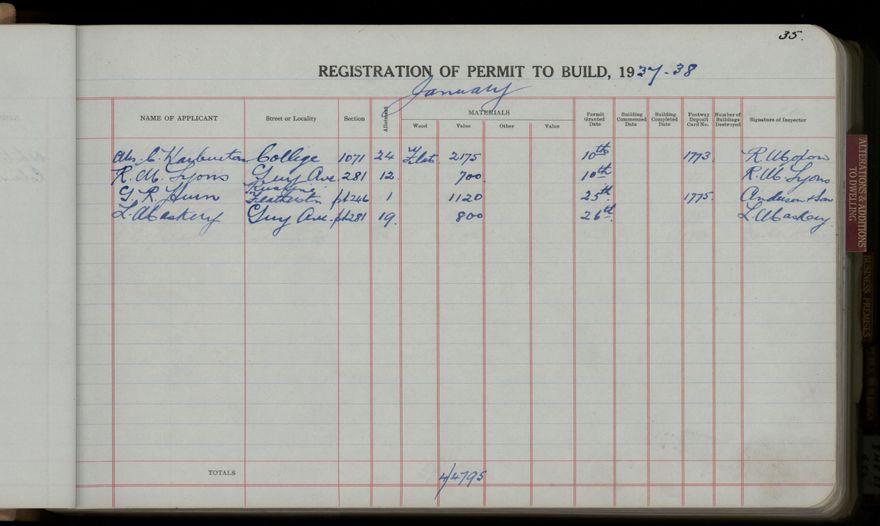 35.
REGISTRATION OF PERMIT TO BUILD, 1937-38
January
NAME OF APPLICANT Street or Locality Section Allotment MATERIALS Wood Value Other Value Permit Granted Date Building Commenced Date Building Completed Date Footway Deposit Card No. Number of Buildings Destroyed Signature of Inspector
Mrs. C. Warburton College 1071 24 W Flats 2175 10th 1773 R Moxon
R. M. Lyons Guy Ave 281 12 700 10th R. M. Lyons
G R Hurn Featherston pt 246 1 1120 25th 1775 Anderson & Son
L. Maskery Guy Ave. pt 281 19. 800 26th L Maskery
TOTALS 4/4795
ALTERATIONS & ADDITIONS
TO DWELLING
BUSINESS PREMISES